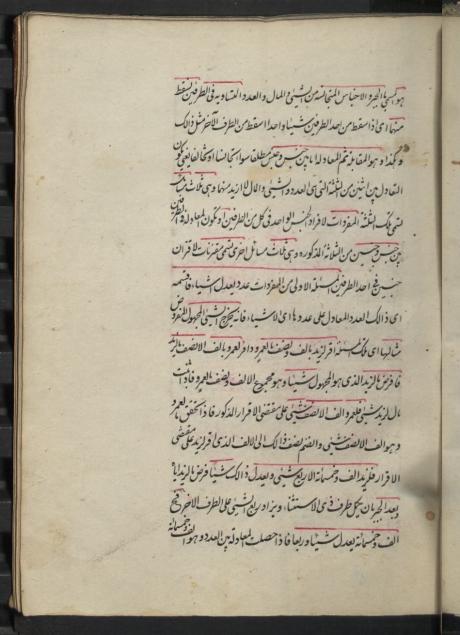 هو المسمى بالجبر والاجناس المتجانسة من الشيئ والمال والعدد المتساويه فى الطرفين تسقط
منهما اى اذا سقط من احد الطرفين شيئا واحدا سقط من الطرف الآخر مثل ذالك
وهكذا وهو المقابلة ثم المعادلة اما بين جنس وجنس مطلقا سواء تجانسا او تخالفا يعنى يكون
التعادل بين اثنين من الثلثة التى هى العدد والشيئ والمال لا ازيد منهما وهى ثلاث مسائل
تسمى تلك الثلثة المفردات لافراد الجنس الواحد فى كل من الطرفين وتكون المعادلة
بين جنس وجنسين من الثلاثة المذكوره وهى ثلاث مسائل اخرى تسمى مقترنات لاقتران
جنسين فى احد الطرفين المسئلة الاولى من المفردات عدد يعدل اشياء فاقسمه
اى ذالك العدد المعادل على عددها اى الاشياء فانه يخرج الشيئ المجهول المفروض
مثالها اى تلك المسئلة اقر لزيد بالف ونصف ما لعمرو واقر لعمرو بالف الا نصف ما لزيد
فافرض ما لزيد الذى هو المجهول شيئا وهو مجموع الالف ونصف ما لعمرو فاذا كانت
مال لزيد شيئ فلعمرو الف الا نصف شيئ على مقتضى الاقرار المذكور فاذا تحقق ما لعمرو
وهو الف الا نصف شيئ وانضم نصف ذالك الى الالف الذى اقر لزيد على مقتضى
الاقرار فلزيد الف وخمسمائة الا ربع شيئ ويعدل ذالك شيئا فرض ما لزيد اياه
وبعد الجبر بان يكمل طرف ذى الاستثناء ويزاد ربع الشيئ على الطرف الآخر فح
الف وخمسمائة يعدل شيئا وربعا فاذا حصلت المعادلة بين العدد وهو الف وخمسمائة